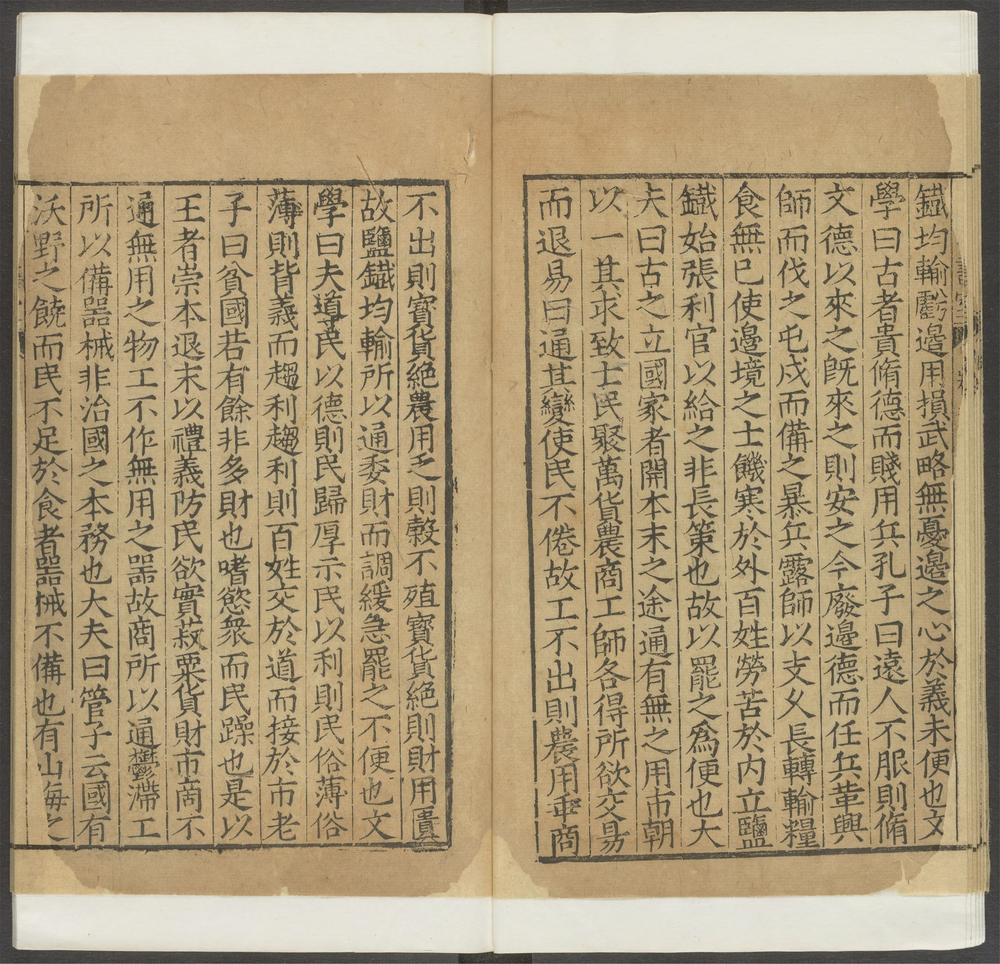 鐵均輸虧邊用損武略無憂邊之心於義未便也文
學曰古者貴脩德而賤用兵孔子曰遠人不服則脩
文德以來之旣來之則安之今廢邊德而任兵革興
師而伐之屯戍而備之暴兵露師以支久長轉輸糧
食無已使邊境之士饑寒於外百姓勞苦於內立鹽
鐵始張利官以給之非長策也故以罷之爲便也大
夫曰古之立國家者開本末之途通有無之用市朝
以一其求致士民聚萬貨農商工師各得所欲交易
而退易曰通其變使民不倦故工不出則農用乖商
不出則寶貨絕農用乏則穀不殖寶貨絕則財用匱
故鹽鐵均輸所以通委財而調緩急罷之不便也文
學曰夫導民以德則民歸厚示民以利則民俗薄俗
薄則背義而趨利趨利則百姓交於道而接於市老
子曰貧國若有餘非多財也嗜慾衆而民躁也是以
王者崇本退末以禮義防民欲實菽粟貨財市商不
通無用之物工不作無用之器故商所以通鬱滯工
所以備器械非治國之本務也大夫曰管子云國有
沃野之饒而民不足於食者器械不備也有山海之